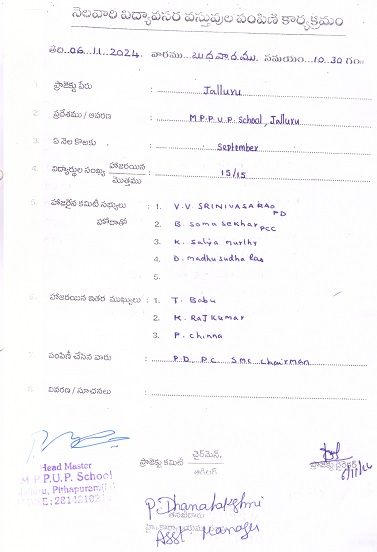 నెలవారి విద్యావసర వస్తువుల పంపిణి కార్యక్రమం
తేది..06..11..2024. వారము...బుధవారము. సమయం..10.30 గం
1. ప్రాజెక్టు పేరు : Jalluru
2. ప్రదేశము / ఆవరణ : M.P.P.U.P. School, Jalluru
3. ఏ నెల కొఱకు : September
4. విద్యార్థుల సంఖ్య హాజరయిన / మొత్తము : 15/15
5. హాజరైన కమిటీ సభ్యులు : 1. V.V. SRINIVASA RAO PD
హోదాతో 2. B. Soma Sekhar PCC
3. K. Satya murthy
4. D. madhu sudha Rao
5.
6. హాజరయిన ఇతర ముఖ్యులు : 1. T. Babu
2. K. Raj Kumar
3. P. chinna
7. పంపిణీ చేసిన వారు : P.D. P.C. SMC Chairman
8. వివరణ / సూచనలు :
Head Master
M.P.P.U.P. School
ప్రాజెక్టు కమిటీ చైర్‌మెన్.
ప్రాజెక్టు డైరెక్టర్
Asst. Manager